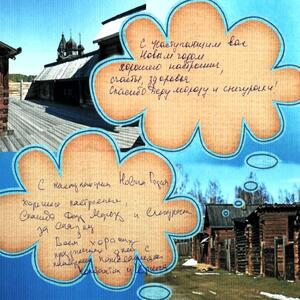 С наступающим вас
Новым годом
хорошего настроения,
счастья, здоровья
Спасибо Деду морозу и снегурочке!
С наступающим Новым Годом
хорошего настроения,
Спасибо Деду Морозу и Снегурочке
за сказку
Всем хороших
праздничных дней с